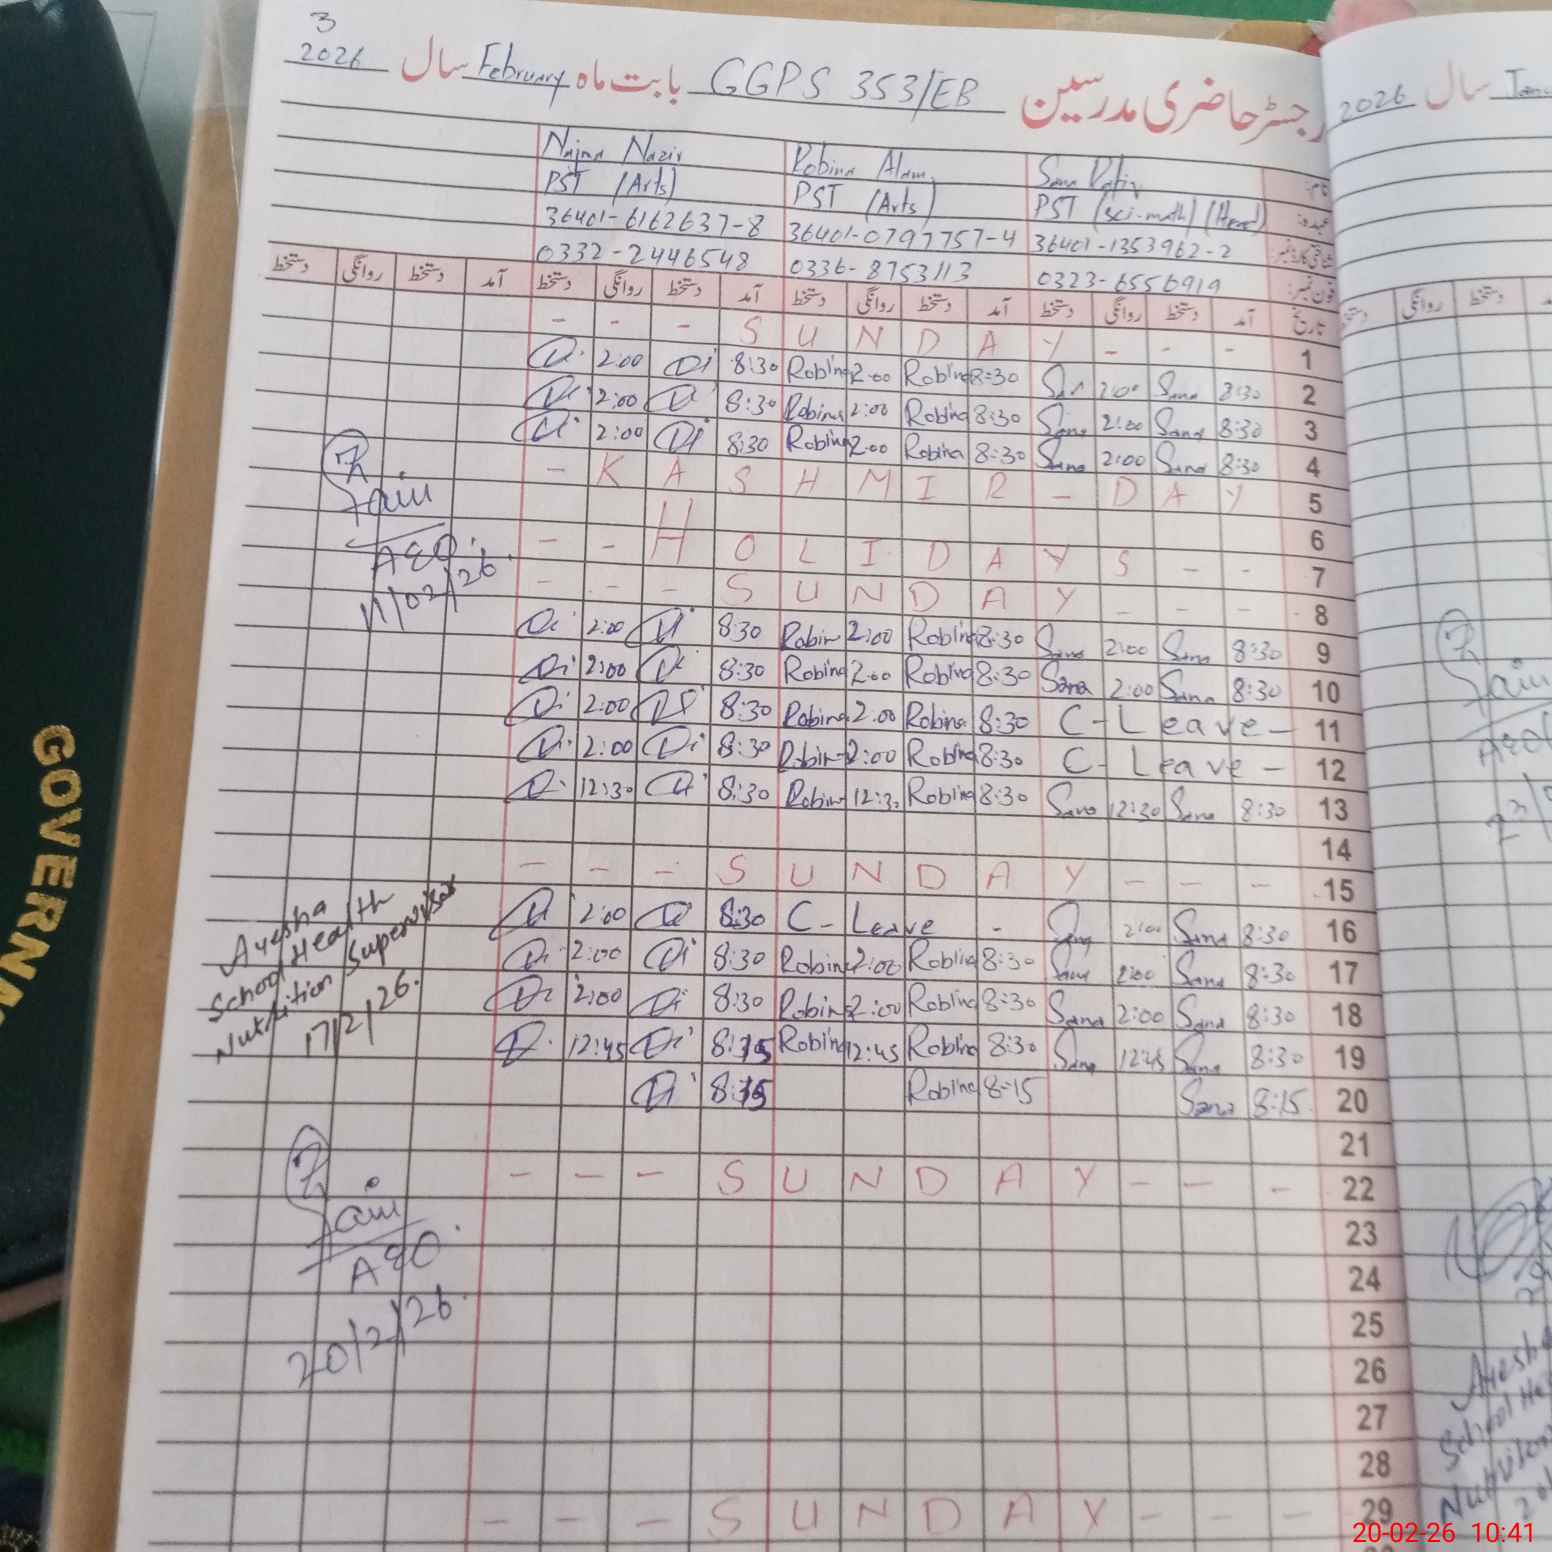 3
2026 سال February بابت ماہ GGPS 353/EB رجسٹر حاضری مدرسین
Najma Nazir Robina Alam Sana
PST (Arts) PST (Arts) PST (sci-math) (Head)
36401-6162637-8 36401-0797757-4 36401-1353962-2
0332-2446548 0336-8753113 0323-6556919
دستخط روانگی دستخط آمد دستخط روانگی دستخط آمد دستخط روانگی دستخط آمد دستخط روانگی دستخط آمد تاریخ
- - - S U N D A Y - - - 1
2:00 8:30 Robina 2:00 Robina 8:30 Sana 2:00 Sana 8:30 2
2:00 8:30 Robina 2:00 Robina 8:30 Sana 2:00 Sana 8:30 3
2:00 8:30 Robina 2:00 Robina 8:30 Sana 2:00 Sana 8:30 4
- K A S H M I R - D A Y 5
6
- - H O L I D A Y S - - 7
- - - S U N D A Y - - - 8
2:00 8:30 Robin 2:00 Robina 8:30 Sana 2:00 Sana 8:30 9
2:00 8:30 Robina 2:00 Robina 8:30 Sana 2:00 Sana 8:30 10
2:00 8:30 Robina 2:00 Robina 8:30 C-Leave- 11
2:00 8:30 Robin 2:00 Robina 8:30 C- Leave - 12
12:30 8:30 Robina 12:30 Robina 8:30 Sana 12:30 Sana 8:30 13
14
- - - S U N D A Y - - - 15
2:00 8:30 C- Leave - Sana 2:00 Sana 8:30 16
2:00 8:30 Robina 2:00 Robina 8:30 Sana 2:00 Sana 8:30 17
2:00 8:30 Robina 2:00 Robina 8:30 Sana 2:00 Sana 8:30 18
12:45 8:15 Robina 12:45 Robina 8:30 Sana 12:45 Sana 8:30 19
8:15 Robina 8:15 Sana 8:15 20
21
- - - S U N D A Y - - - 22
23
24
25
26
27
28
- - - S U N D A Y - - - 29
AEO
11/02/26
Ayesha
School Health
Nutrition Supervisor
17/2/26.
AEO
20/2/26
2026 سال
روانگی دستخط
Ayesha
School
GOVERN
20-02-26 10:41